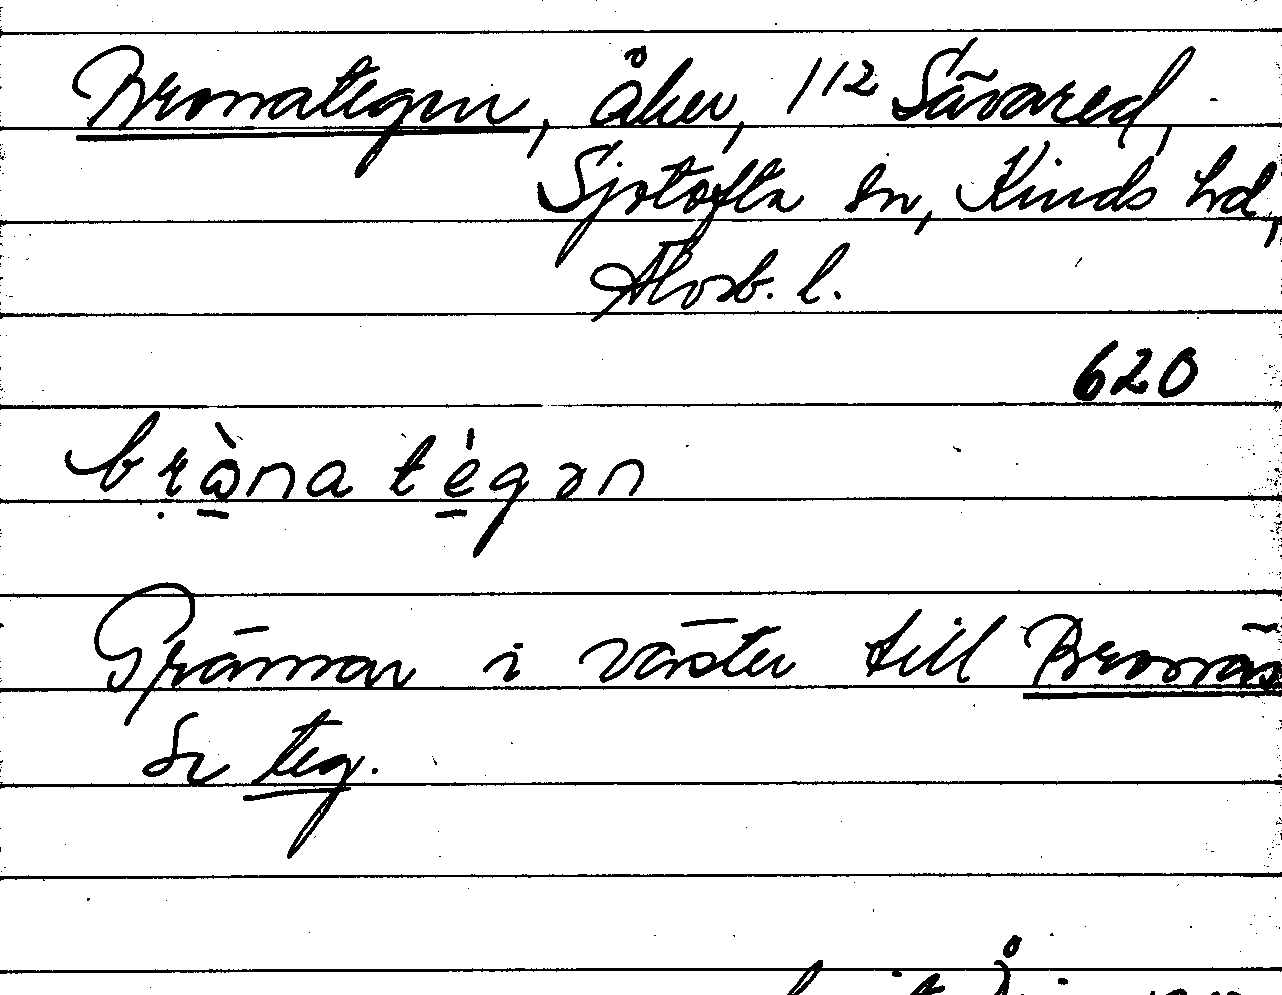 Bronategen, åker, 1/12 Sävared,
Sjötofta sn, Kinds hd,
Älvsb. l.
620
bròna tégən
Gränsar i väster till Bronäs
Se teg.